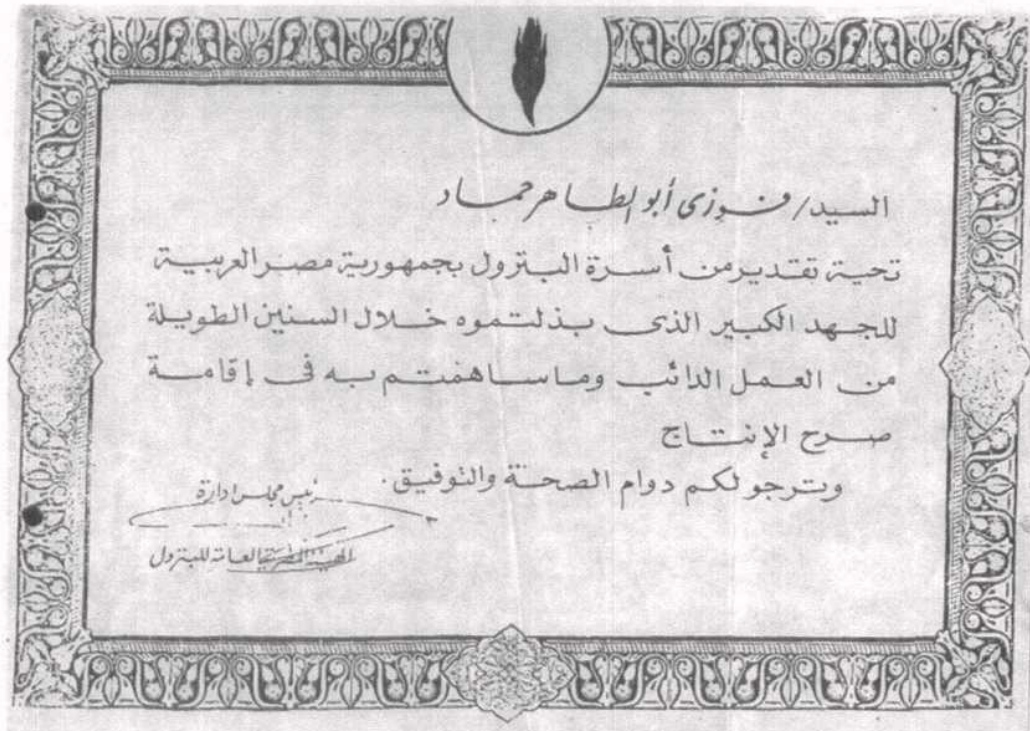 السيد/ فوزى أبو الطاهر حماد
تحية تقدير من أسرة البترول بجمهورية مصر العربية
للجهد الكبير الذى بذلتموه خلال السنين الطويلة
من العمل الدائب وما ساهمتم به فى إقامة
صرح الإنتاج
ونرجو لكم دوام الصحة والتوفيق.
رئيس مجلس ادارة
الهيئة المصرية العامة للبترول